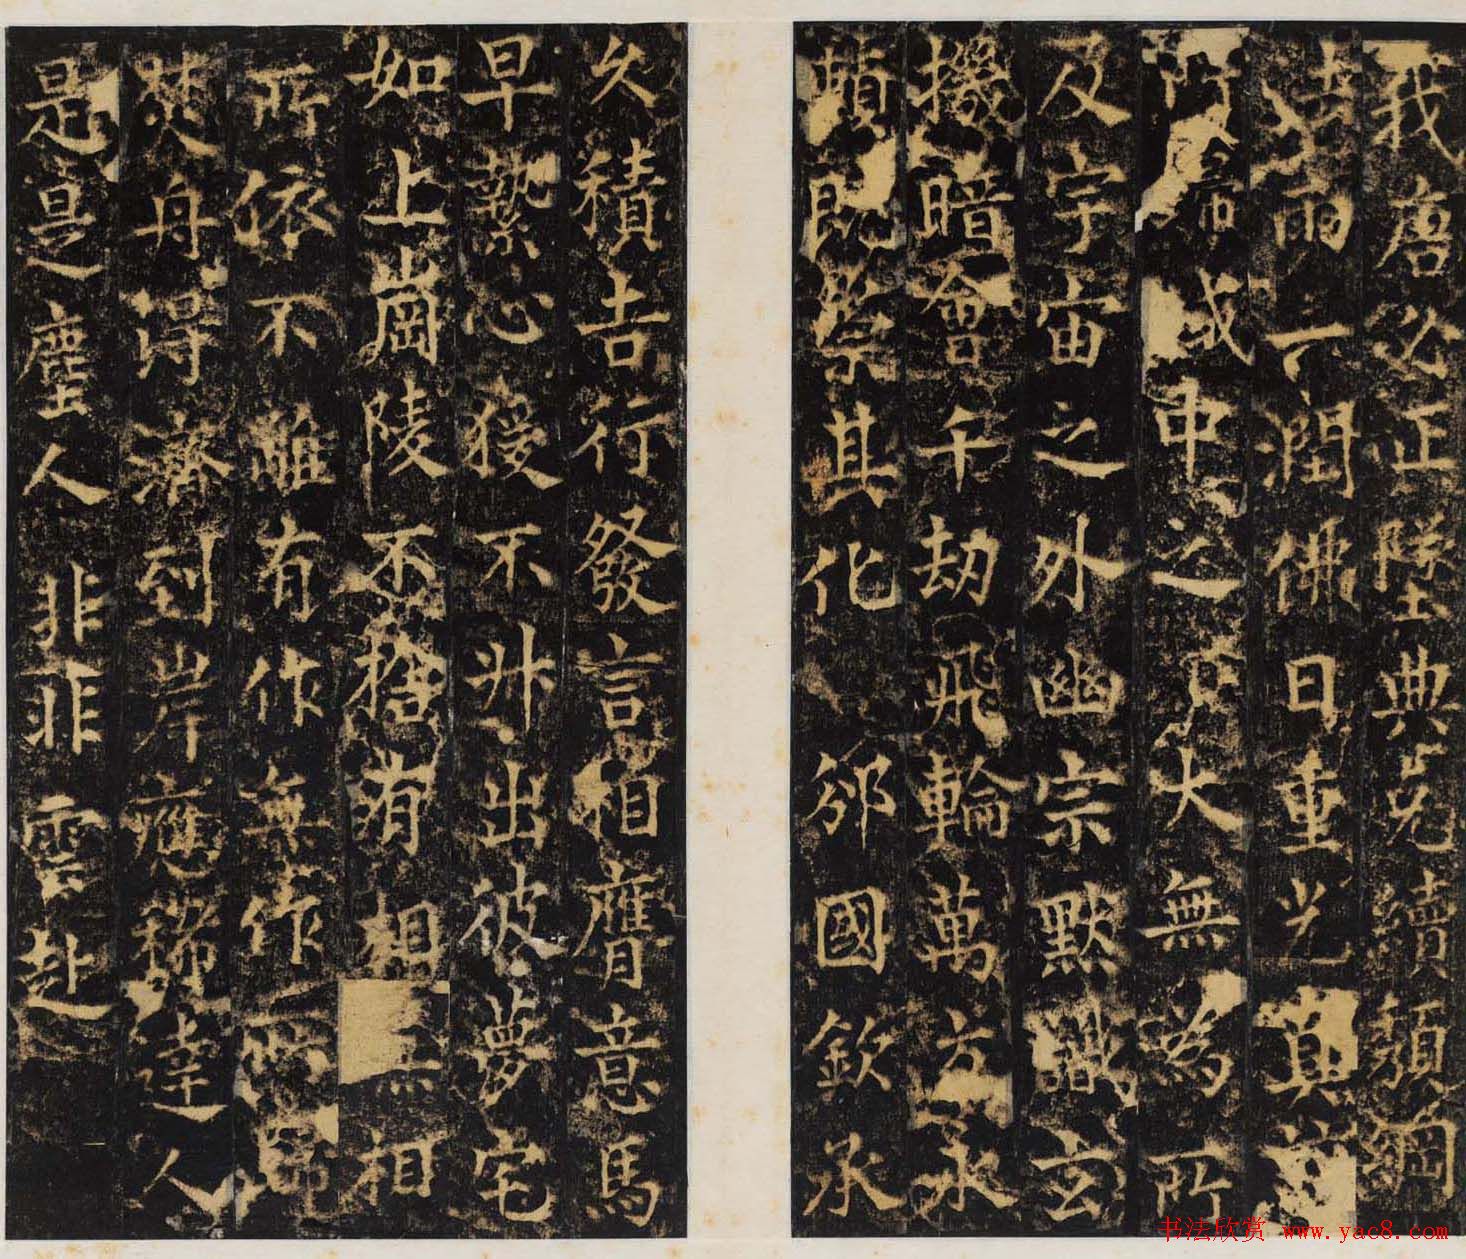 我唐正墜典克續頹綱
雨下潤佛日重光真
希或申之大無為所
及宇宙之外幽宗默識玄
機暗會千劫飛輪萬方永
賴既崇其化邠國欽承
久積吉行發言相膺意馬
早縶心猨不升出彼夢宅
如上崗陵不捨有相無相
所依不離有作無作所歸
焚舟得濟到岸應稀達人
是是塵人非非雲赴
书法欣赏 www.yac8.com